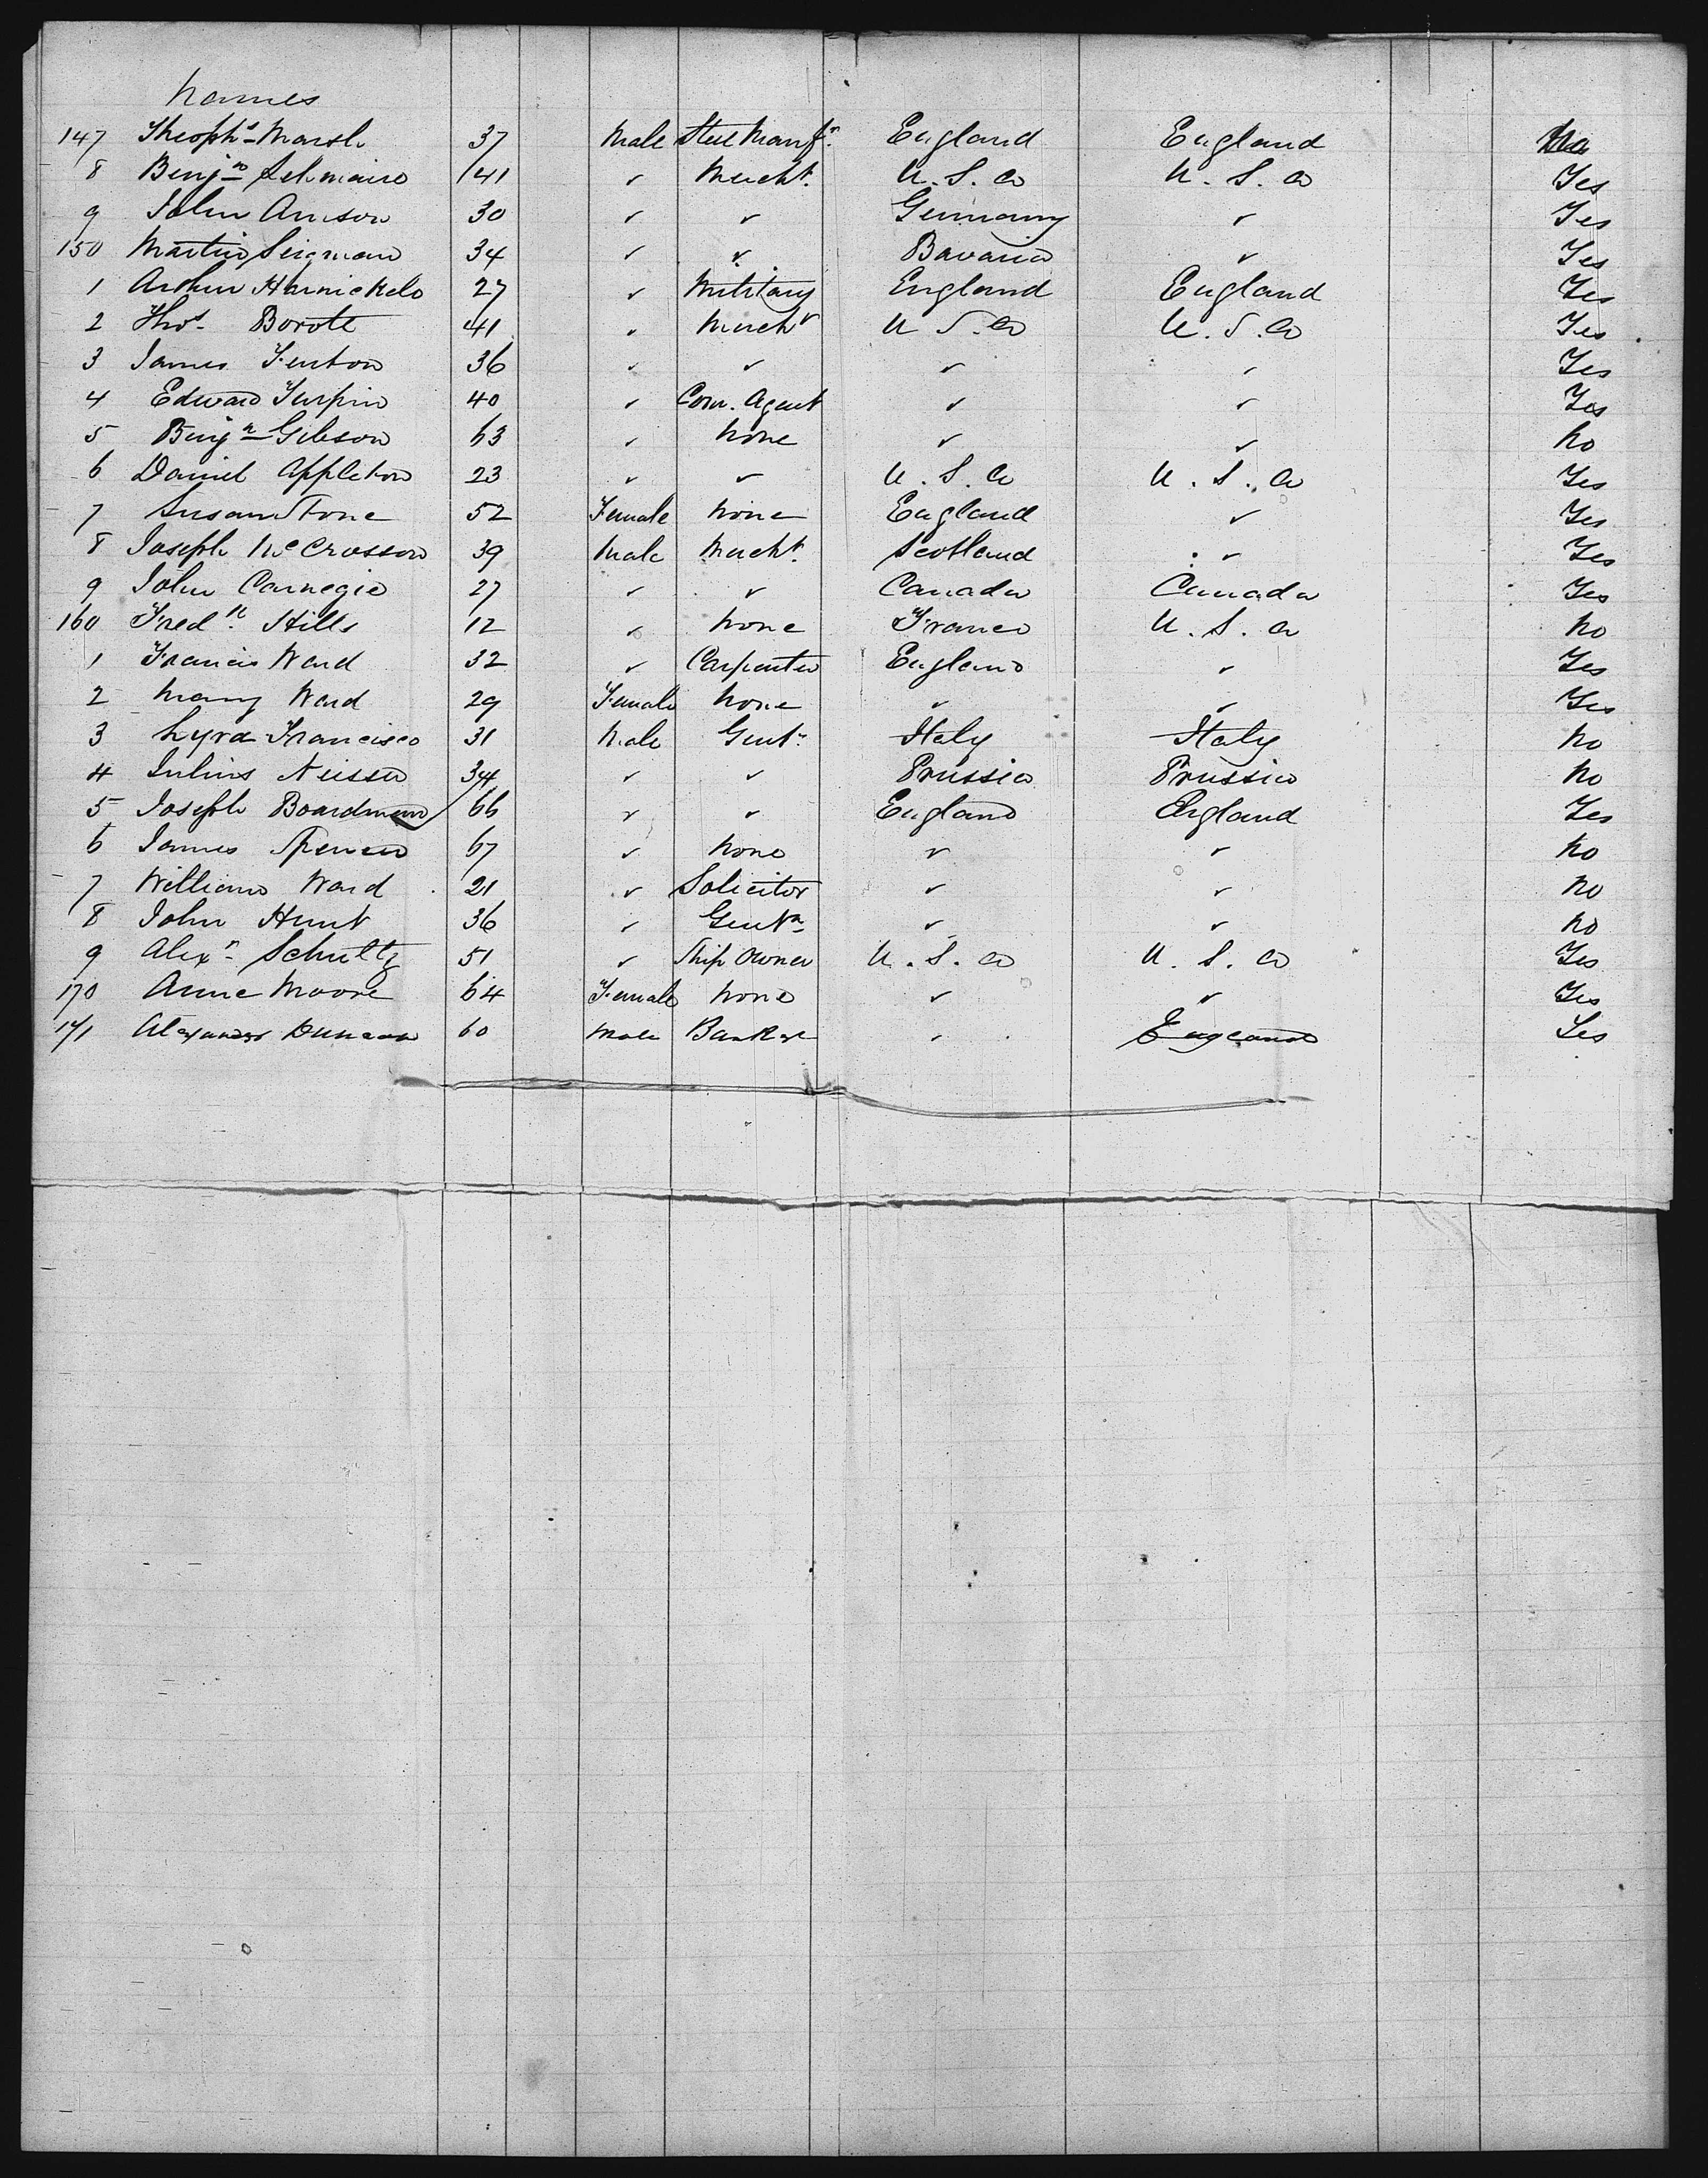 Names
147 Theophs Marsh 37 Male Steel Manfr. England England No
8 Benjn 41 ✓ Mercht. U.S.a U.S.a Yes
9 John Anison 30 ✓ ✓ Germany ✓ Yes
150 Martin Seigman 34 ✓ ✓ Bavaria ✓ Yes
1 Arthur 27 ✓ Military England England Yes
2 Thos. Borote 41 ✓ Mercht U.S.a U.S.a Yes
3 James Fenton 36 ✓ ✓ ✓ ✓ Yes
4 Edward Turpin 40 ✓ Com. Agent ✓ ✓ Yes
5 Benjn Gibson 63 ✓ None ✓ ✓ No
6 Daniel Appleton 23 ✓ ✓ U.S.a U.S.a Yes
7 Susan Stone 52 Female None England ✓ Yes
8 Joseph McCrosson 39 Male Mercht. Scotland ✓ Yes
9 John Carnegie 27 ✓ ✓ Canada Canada Yes
160 Fredk. Hills 12 ✓ None France U.S.a No
1 Francis Ward 32 ✓ Carpenter England ✓ Yes
2 Mary Ward 29 Female None ✓ ✓ Yes
3 Lyra Francisco 31 Male Gentn. Italy Italy No
4 Julius Neisser 34 ✓ ✓ Prussia Prussia No
5 Joseph Boardman 66 ✓ ✓ England England Yes
6 James Spencer 67 ✓ None ✓ ✓ No
7 William Ward 21 ✓ Solicitor ✓ ✓ No
8 John Hunt 36 ✓ Gentn ✓ ✓ No
9 Alexr. Schultz 51 ✓ Ship Owner U.S.a U.S.a Yes
170 Anne Moore 64 Female None ✓ ✓ Yes
171 Alexander Duncan 60 Male Banker ✓ England Yes